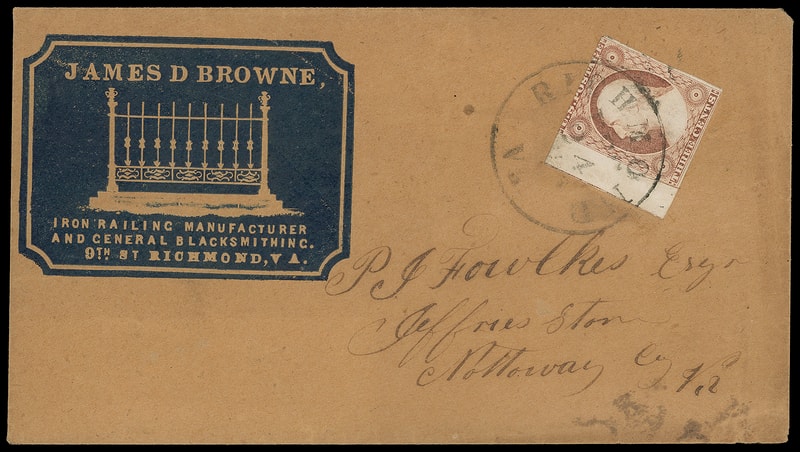 JAMES D BROWNE,
IRON RAILING MANUFACTURER
AND GENERAL BLACKSMITHING.
9TH ST RICHMOND, VA.
RICHMOND VA
U.S. POSTAGE
THREE CENTS
P J Fowlkes Esqr
Jeffries Store
Nottoway Co
Va